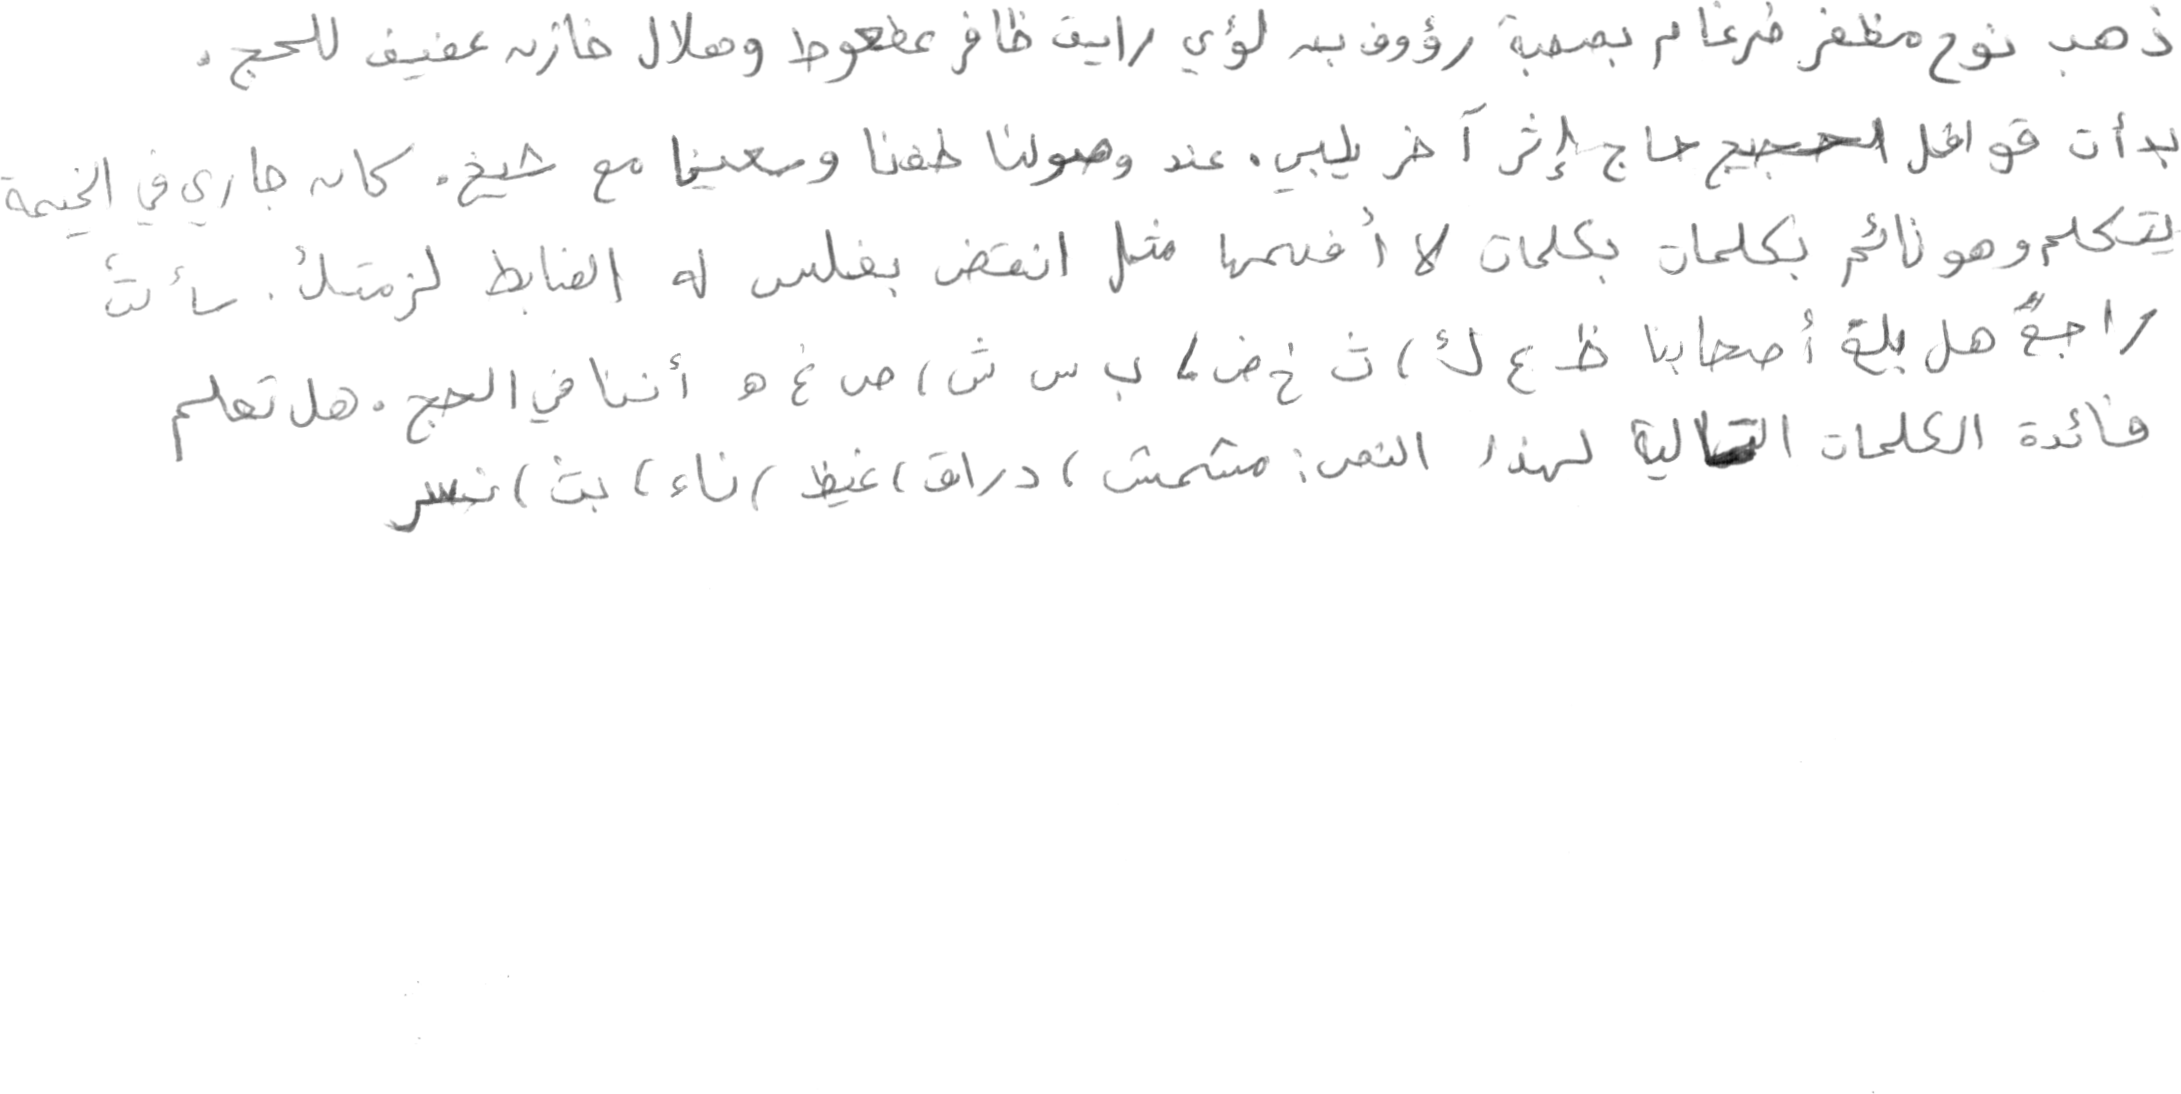 ذهب نوح مظفر ضرغام بصحبة رؤوف بن لؤي رايق ظافر عظعوط وهلال خازن عفيف للحج.
بدأت قوافل الحجيج حاج إثر آخر يلبي. عند وصولنا طفنا وسعينا مع شيخ. كان جاري في الخيمة
يتكلم وهو نائم بكلمات بكلمات لا أفهمها مثل انقض بغلس له الضابط لزمتك. سألت
راجع هل بلغ أصحابنا ظ ع ك، ث خ ض، ب س ش، ص غ ه أننا في الحج. هل تعلم
فائدة الكلمات التالية لهذا النص: مشمش، دراق، غيظ، ناء، بث، نسر